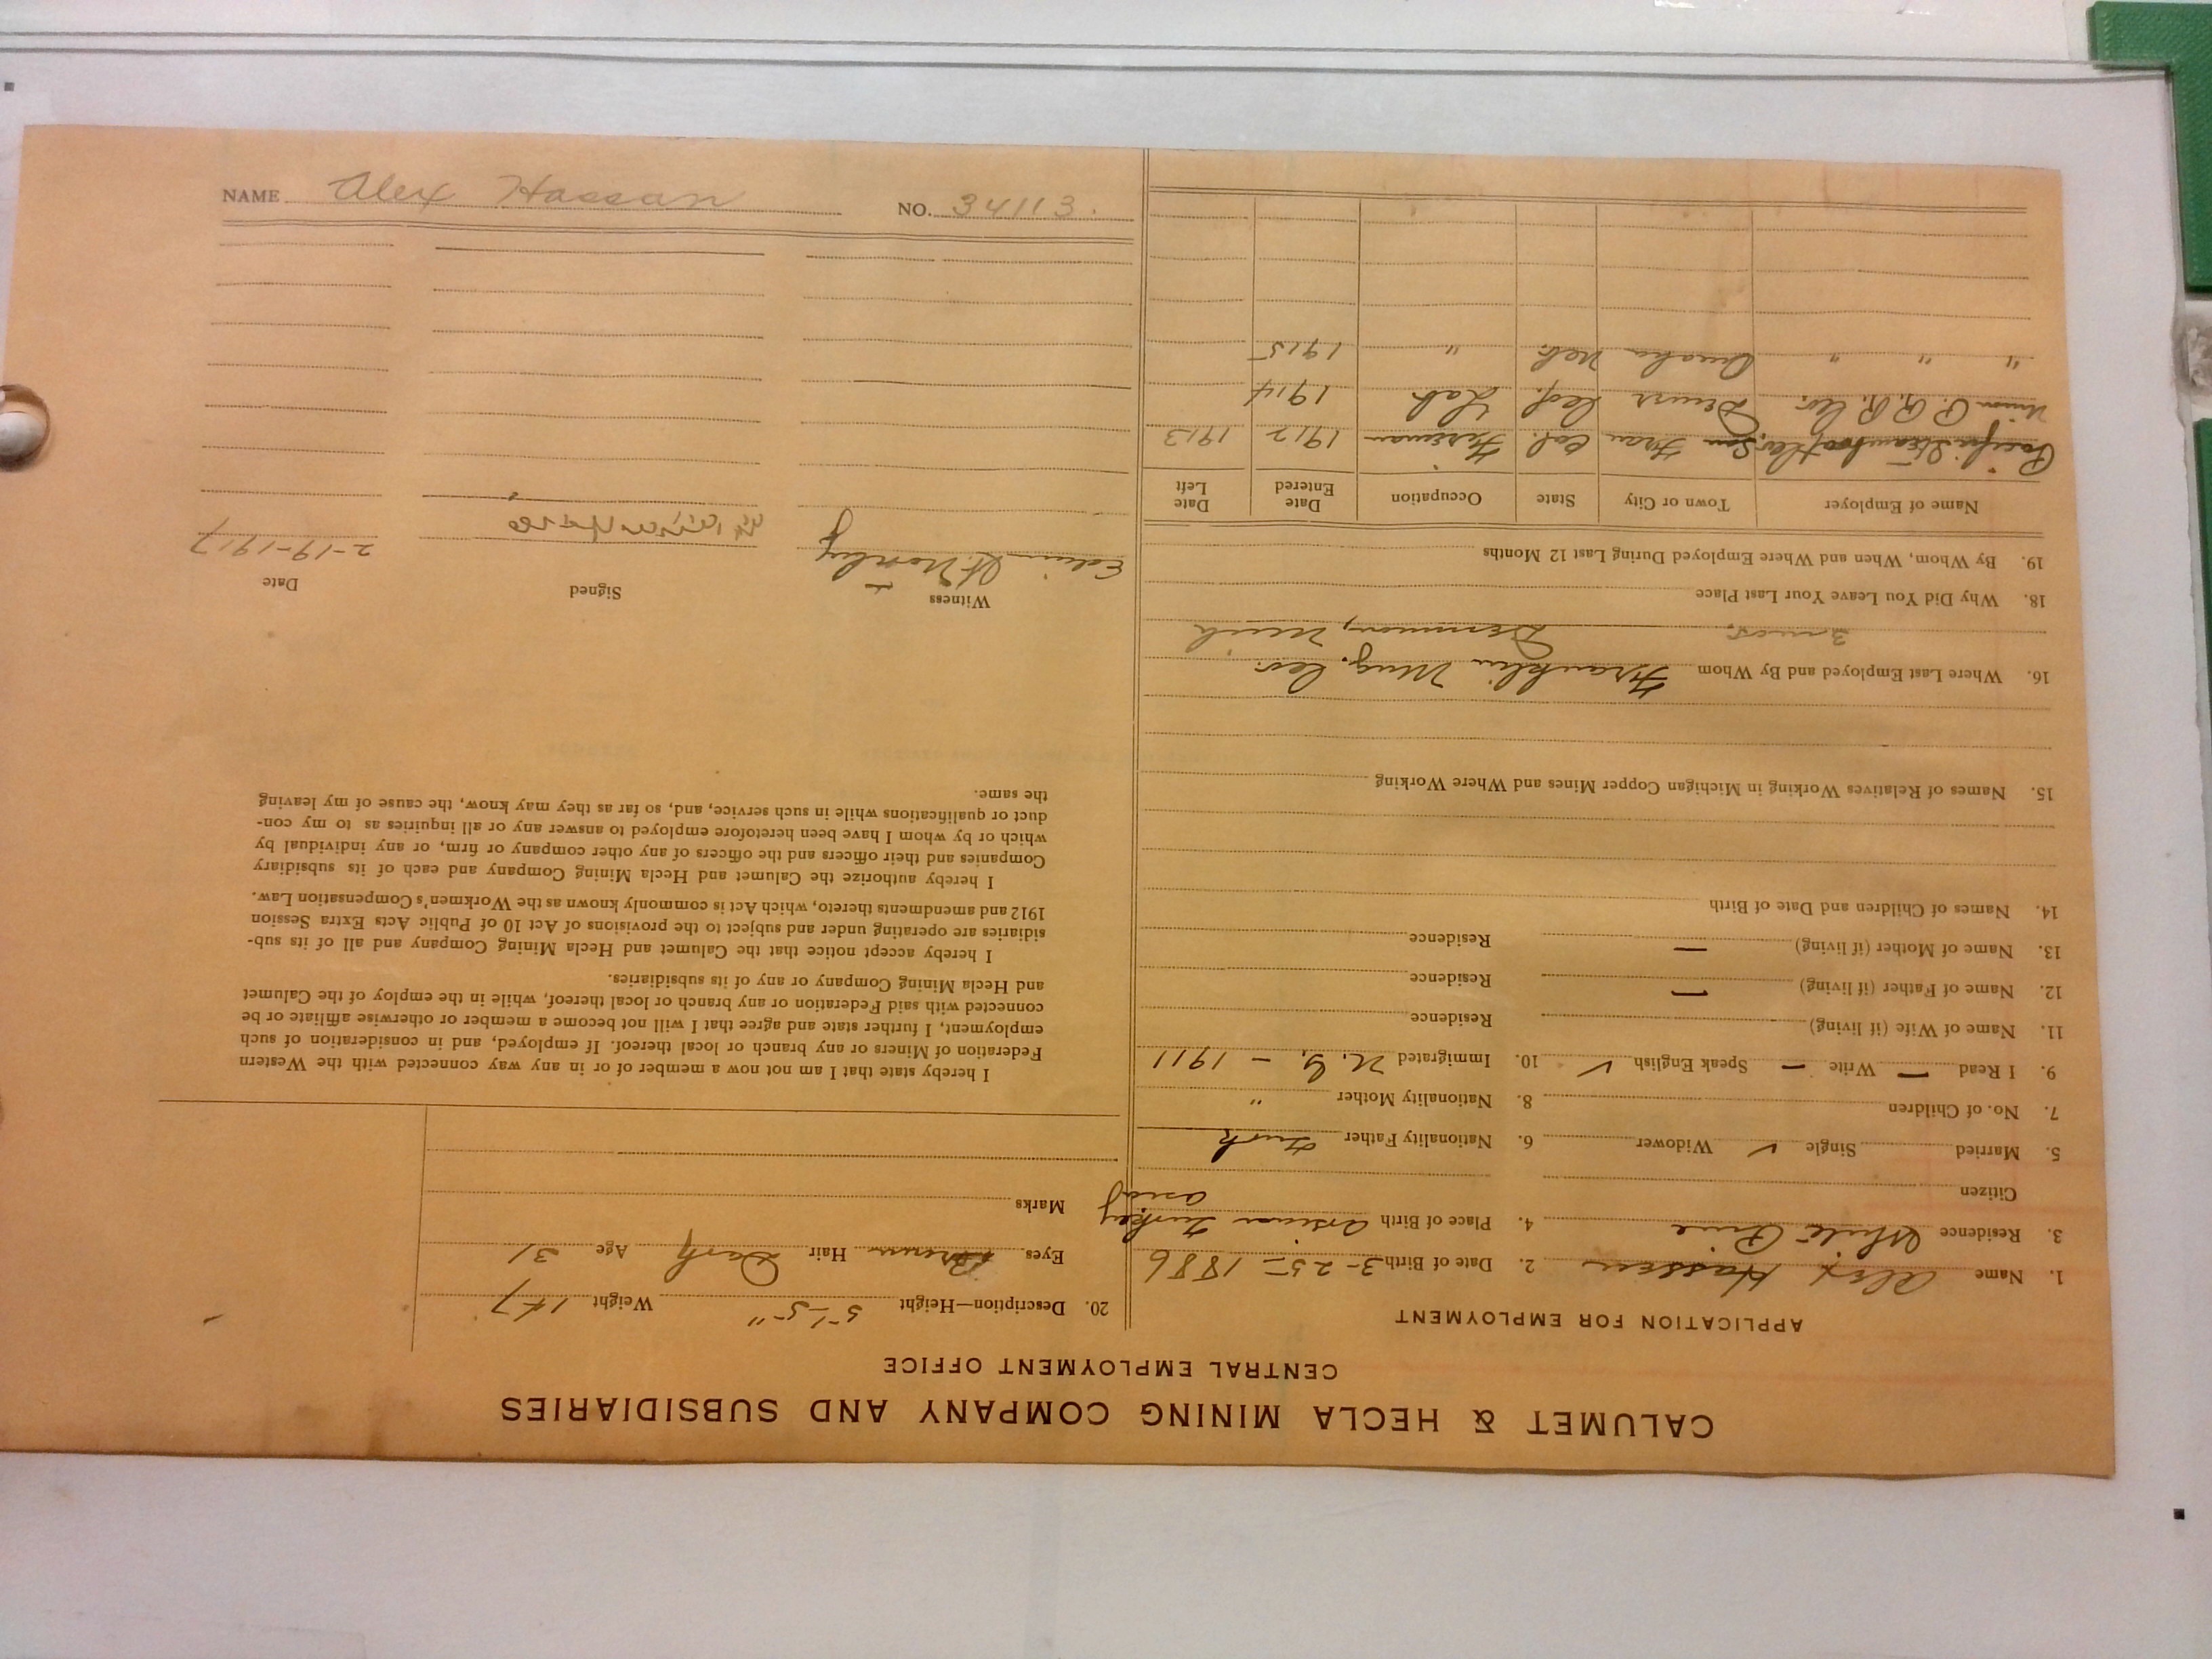 CALUMET & HECLA MINING COMPANY AND SUBSIDIARIES
CENTRAL EMPLOYMENT OFFICE
APPLICATION FOR EMPLOYMENT
1. Name Alex Hassan 2. Date of Birth 3-25-1886
3. Residence White Pine 4. Place of Birth Turkey
Asia
Citizen
5. Married Single ✓ Widower 6. Nationality Father Turk
7. No. of Children 8. Nationality Mother "
9. I Read — Write — Speak English ✓ 10. Immigrated N.Y. - 1911
11. Name of Wife (if living) Residence
12. Name of Father (if living) — Residence
13. Name of Mother (if living) — Residence
14. Names of Children and Date of Birth
15. Names of Relatives Working in Michigan Copper Mines and Where Working
16. Where Last Employed and By Whom Franklin Mng. Co.
3 mos. Demmon, Mich
18. Why Did You Leave Your Last Place
19. By Whom, When and Where Employed During Last 12 Months
Name of Employer Town or City State Occupation Date Entered Date Left
Pacific Steamboat Co. San Fran Cal. Fireman 1912 1913
Union P. R.R. Co. Denver Lab 1914
" " " Omaha Neb. " 1915
20. Description—Height 5'-5" Weight 147
Eyes Brown Hair Dark Age 31
Marks
I hereby state that I am not now a member of or in any way connected with the Western
Federation of Miners or any branch or local thereof. If employed, and in consideration of such
employment, I further state and agree that I will not become a member or otherwise affiliate or be
connected with said Federation or any branch or local thereof, while in the employ of the Calumet
and Hecla Mining Company or any of its subsidiaries.
I hereby accept notice that the Calumet and Hecla Mining Company and all of its sub-
sidiaries are operating under and subject to the provisions of Act 10 of Public Acts Extra Session
1912 and amendments thereto, which Act is commonly known as the Workmen's Compensation Law.
I hereby authorize the Calumet and Hecla Mining Company and each of its subsidiary
Companies and their officers and the officers of any other company or firm, or any individual by
which or by whom I have been heretofore employed to answer any or all inquiries as to my con-
duct or qualifications while in such service, and, so far as they may know, the cause of my leaving
the same.
Witness Signed Date
Edwin 2-19-1917
NAME Alex Hassan NO. 34113.